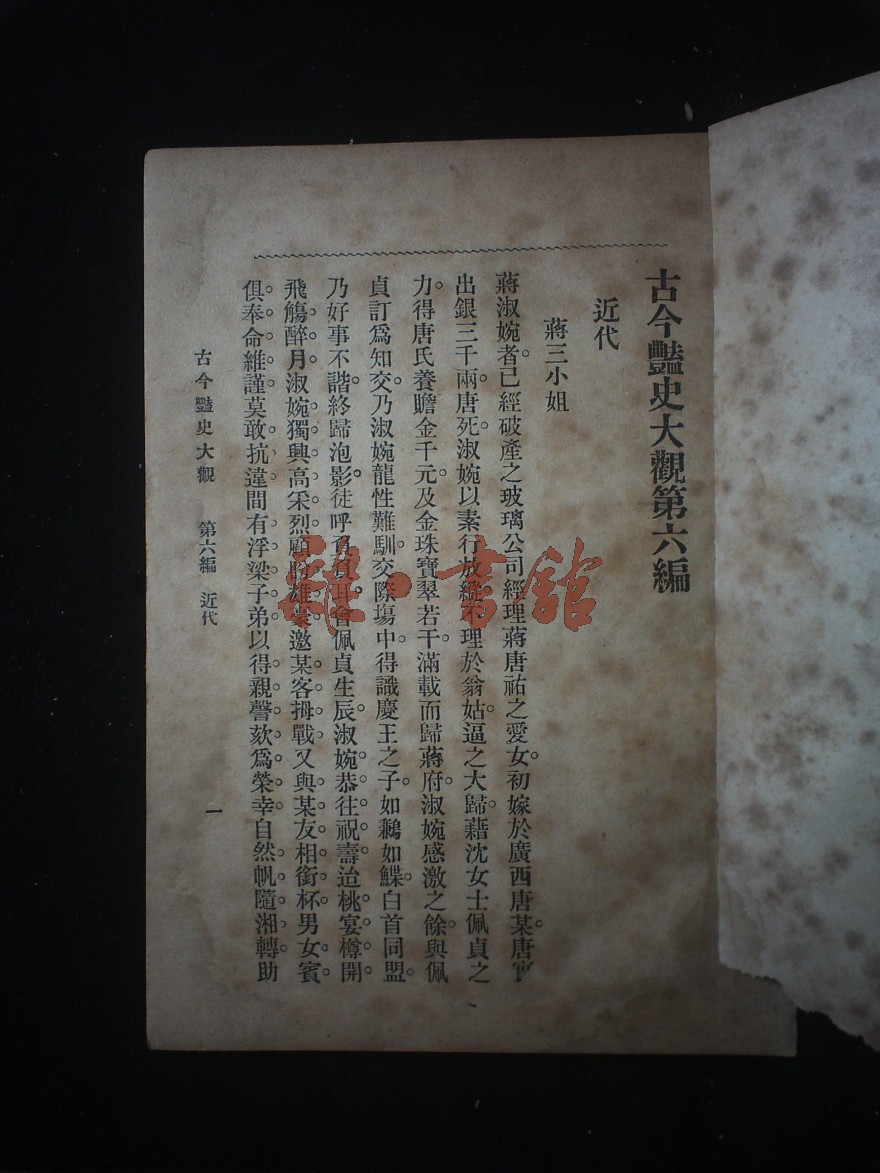 古今豔史大觀第六編
近代
蔣三小姐
蔣淑婉者。已經破產之玻璃公司經理蔣唐祐之愛女。初嫁於廣西唐某。唐官
出銀三千兩。唐死。淑婉以素行放縱不理於翁姑。逼之大歸。藉沈女士佩貞之
力。得唐氏養贍金千元。及金珠寶翠若干。滿載而歸蔣府。淑婉感激之餘。與佩
貞訂爲知交。乃淑婉龍性難馴。交際塲中。得識慶王之子。如鶼如鰈。白首同盟。
乃好事不諧。終歸泡影。徒呼負負耳。會佩貞生辰。淑婉恭往祝壽。迨桃宴樽開。
飛觴醉月。淑婉獨興高采烈。顧邀某客拇戰。又與某友相銜杯。男女賓
俱奉命維謹。莫敢抗違。間有浮梁子弟。以得親謦欬爲榮幸。自然帆隨湘轉。助
古今豔史大觀 第六編 近代 一
雜·書館